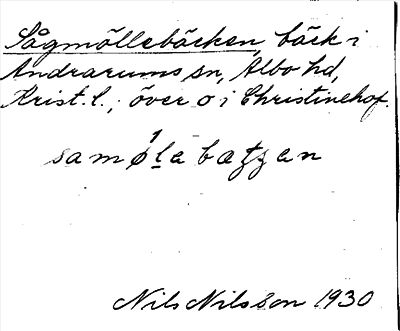 Sågmöllebäcken, bäck i
Andrarums sn, Albo hd,
Krist. l., över o i Christinehof.
samø̍la bæʈʈan
Nils Nilsson 1930